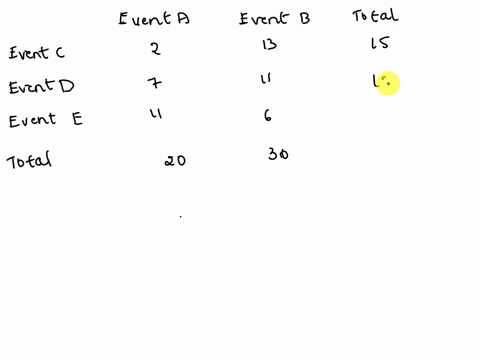 Event A Event B Total
Event C 2 13 15
Event D 7 11
Event E 11 6
Total 20 30